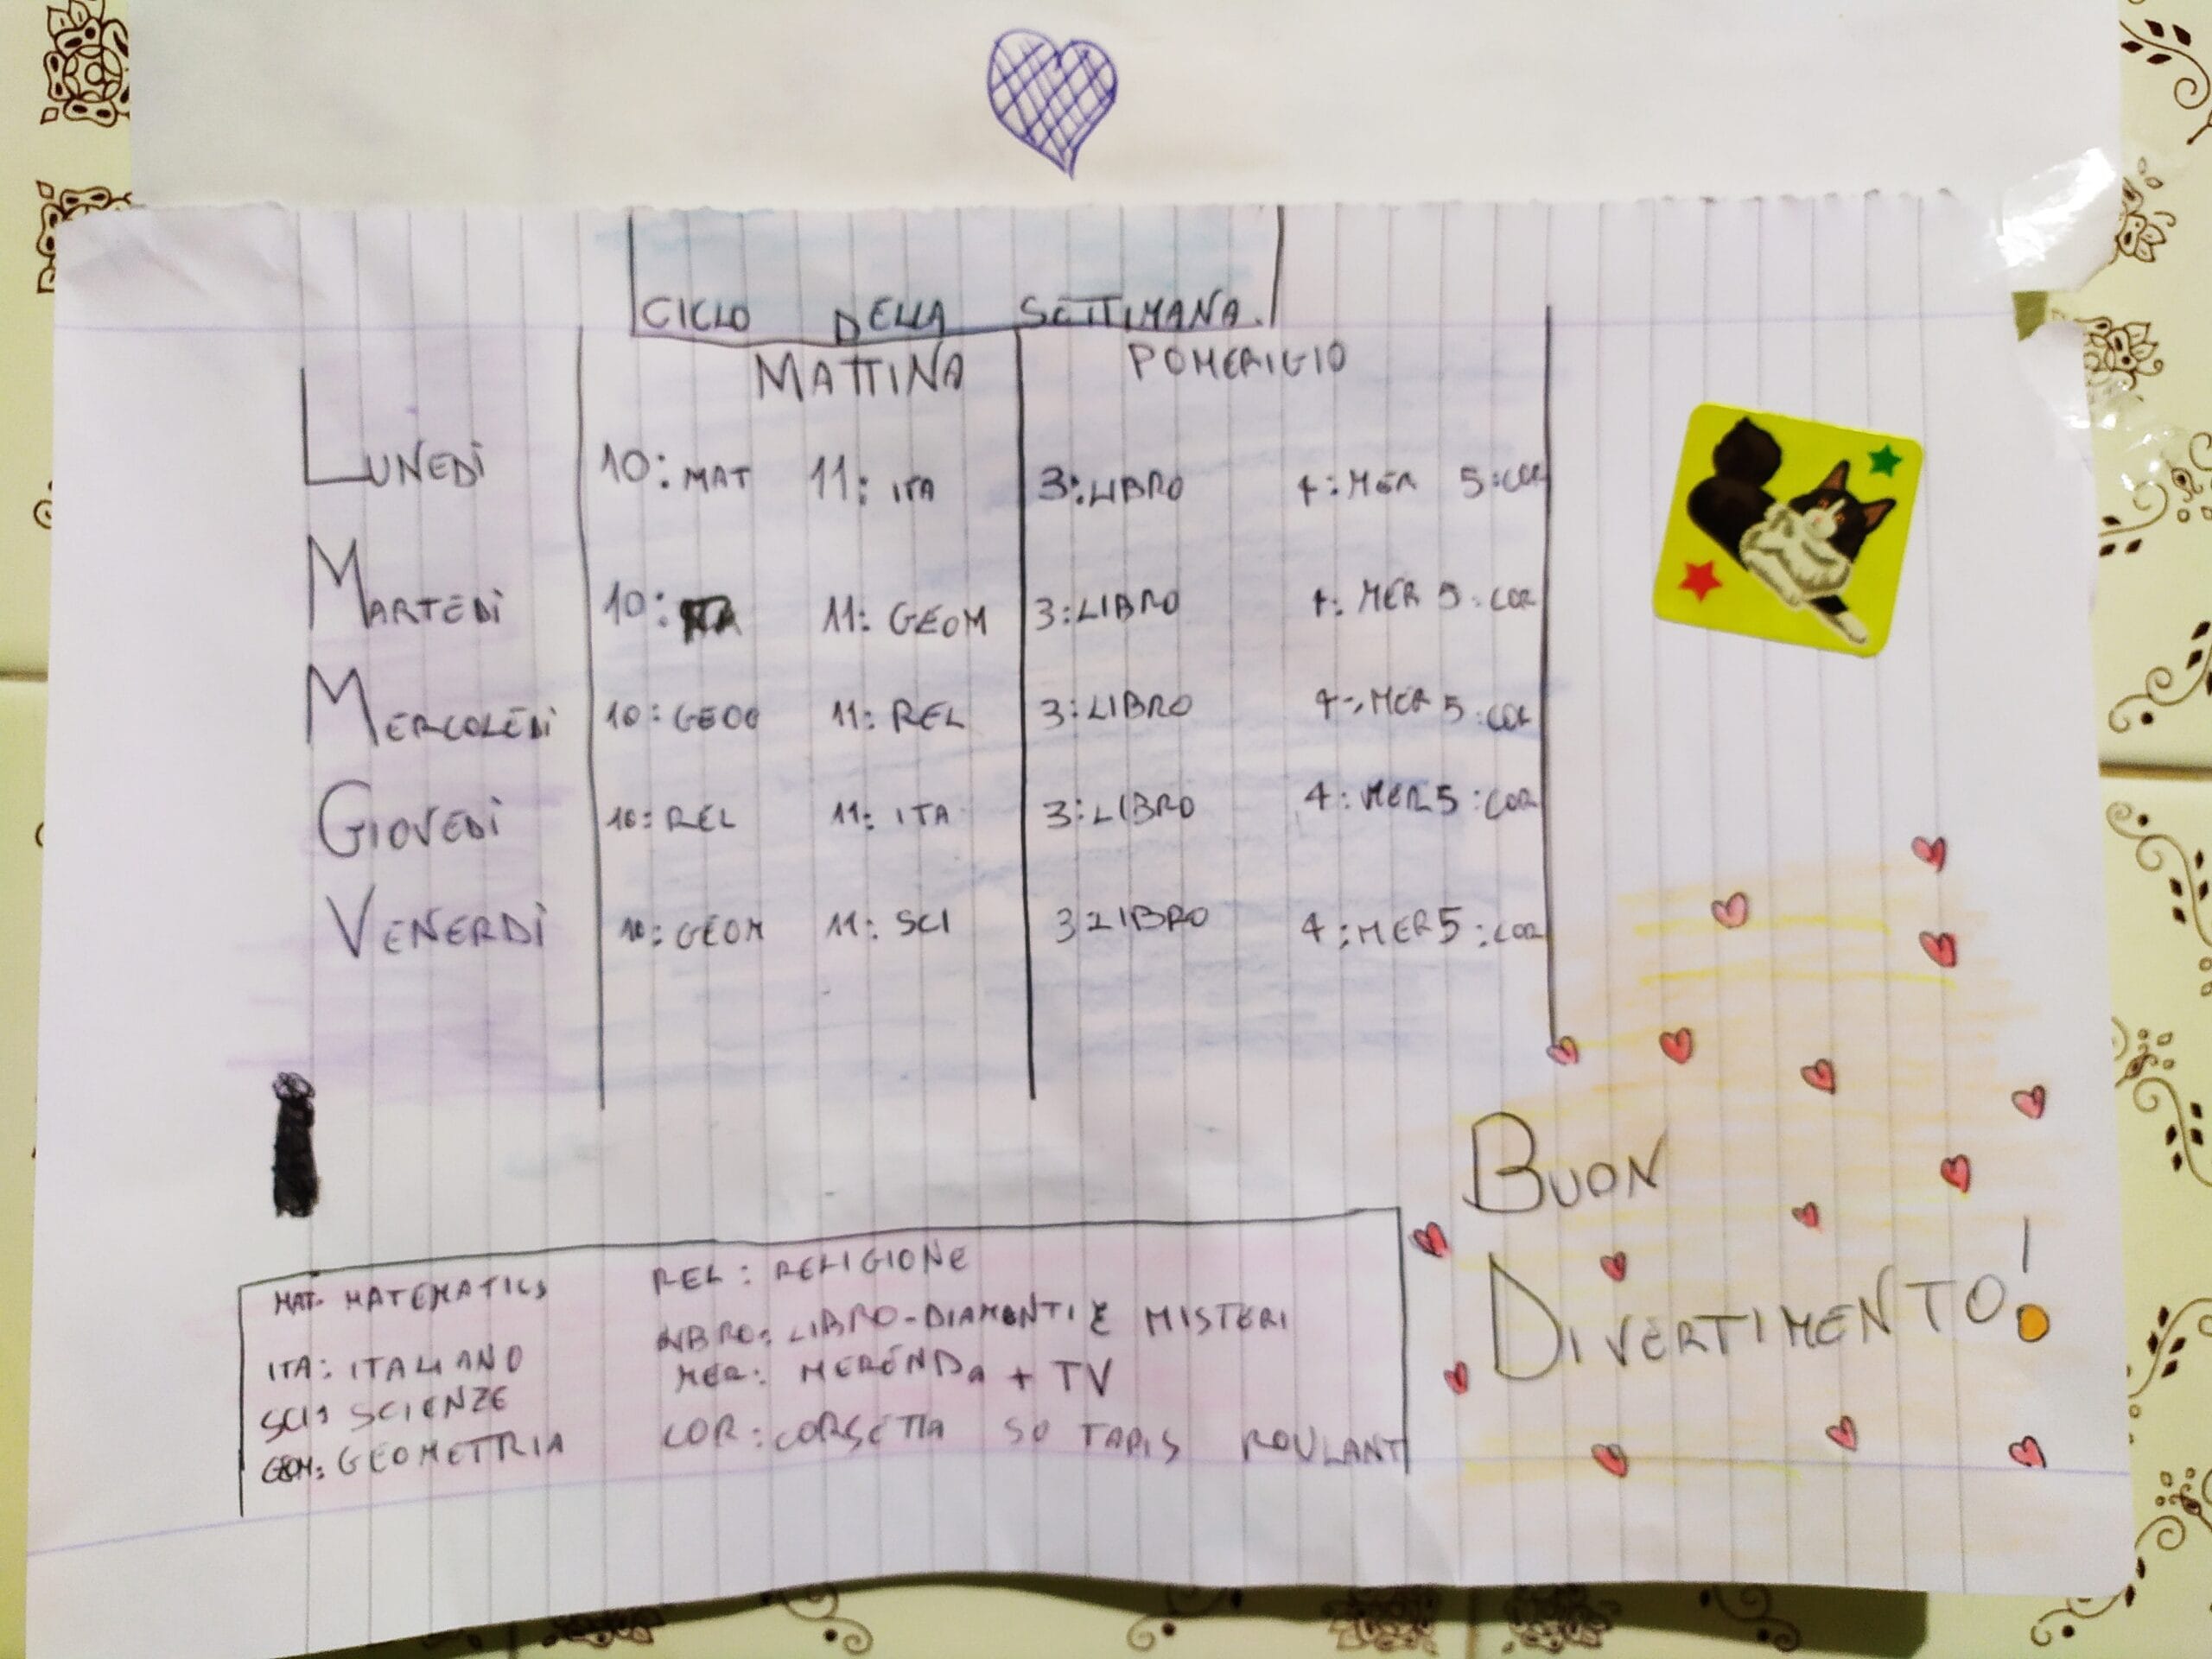 CICLO DELLA SETTIMANA.
MATTINA POMERIGIO
LUNEDÌ 10: MAT 11: ITA 3: LIBRO 4: MER 5: COR
MARTEDÌ 10: 11: GEOM 3: LIBRO 4: MER 5: COR
MERCOLEDÌ 10: 11: REL 3: LIBRO 4: MER 5: COR
GIOVEDÌ 10: REL 11: ITA 3: LIBRO 4: MER 5: COR
VENERDÌ 10: GEOM 11: SCI 3 LIBRO 4: MER 5: COR
MAT: MATEMATICA
ITA: ITALIANO
SCI: SCIENZE
GEOM: GEOMETRIA
REL: RELIGIONE
LIBRO: LIBRO-DIAMANTI E MISTERI
MER: MERENDA + TV
COR: CORSETTA SU TAPIS ROULANT
BUON
DIVERTIMENTO!